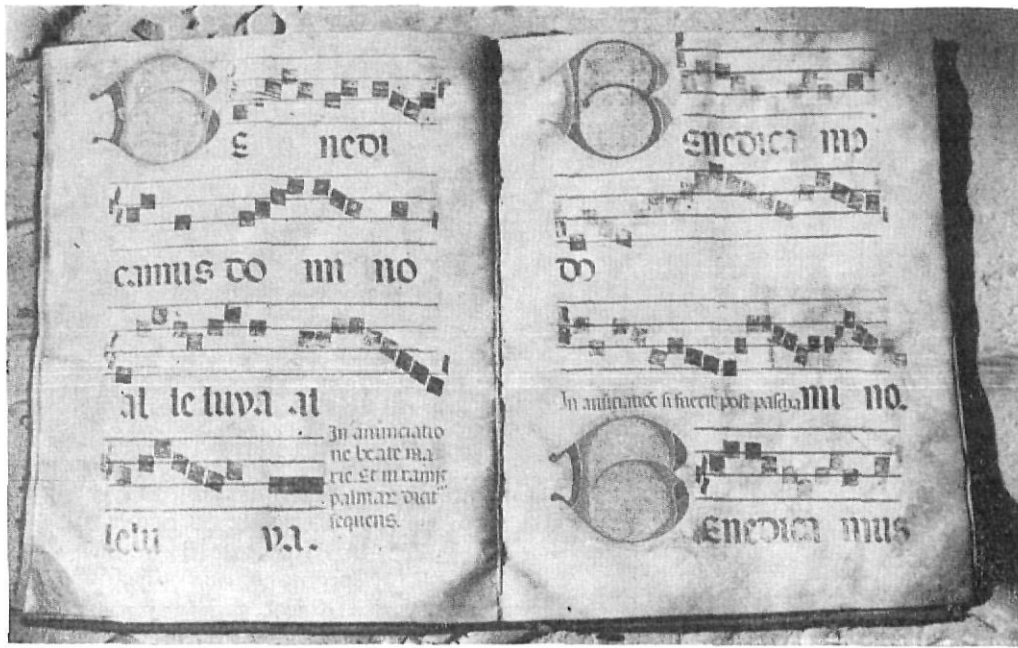 BE nedi
camus do mi no
al le luya al
In anunciatio
ne beate ma
rie. Et in ramis
palmar dicit
sequens.
lelu ya.
BEnedica mᷤ
do
In anuciatoe si fuerit post pascha mi no.
BEnedica mus